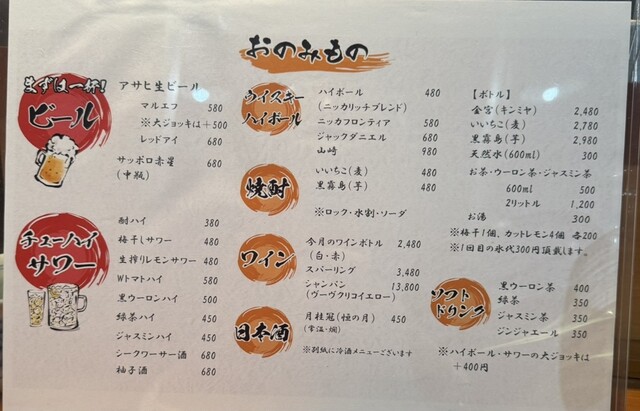 おのみもの
まずは一杯!
ビール
アサヒ生ビール
マルエフ 580
※大ジョッキは+500
レッドアイ 680
サッポロ赤星 680
(中瓶)
チューハイ
サワー
酎ハイ 380
梅干しサワー 480
生搾りレモンサワー 480
Wトマトハイ 580
黒ウーロンハイ 500
緑茶ハイ 450
ジャスミンハイ 450
シークワーサー酒 680
柚子酒 680
ウイスキー
ハイボール
ハイボール 480
(ニッカリッチブレンド)
ニッカフロンティア 580
ジャックダニエル 680
山崎 980
焼酎
いいちこ(麦) 480
黒霧島(芋) 480
※ロック・水割・ソーダ
ワイン
今月のワインボトル 2,480
(白・赤)
スパーリング 3,480
シャンパン 13,800
(ヴーヴクリコイエロー)
日本酒
月桂冠(恒の月) 450
(常温・燗)
※別紙に冷酒メニューございます
【ボトル】
金宮(キンミヤ) 2,480
いいちこ(麦) 2,780
黒霧島(芋) 2,980
天然水(600ml) 300
お茶・ウーロン茶・ジャスミン茶
600ml 500
2リットル 1,200
お湯 300
※梅干1個、カットレモン4個 各200
※1回目の氷代300円頂戴します。
ソフト
ドリンク
黒ウーロン茶 400
緑茶 350
ジャスミン茶 350
ジンジャエール 350
※ハイボール・サワーの大ジョッキは
+400円